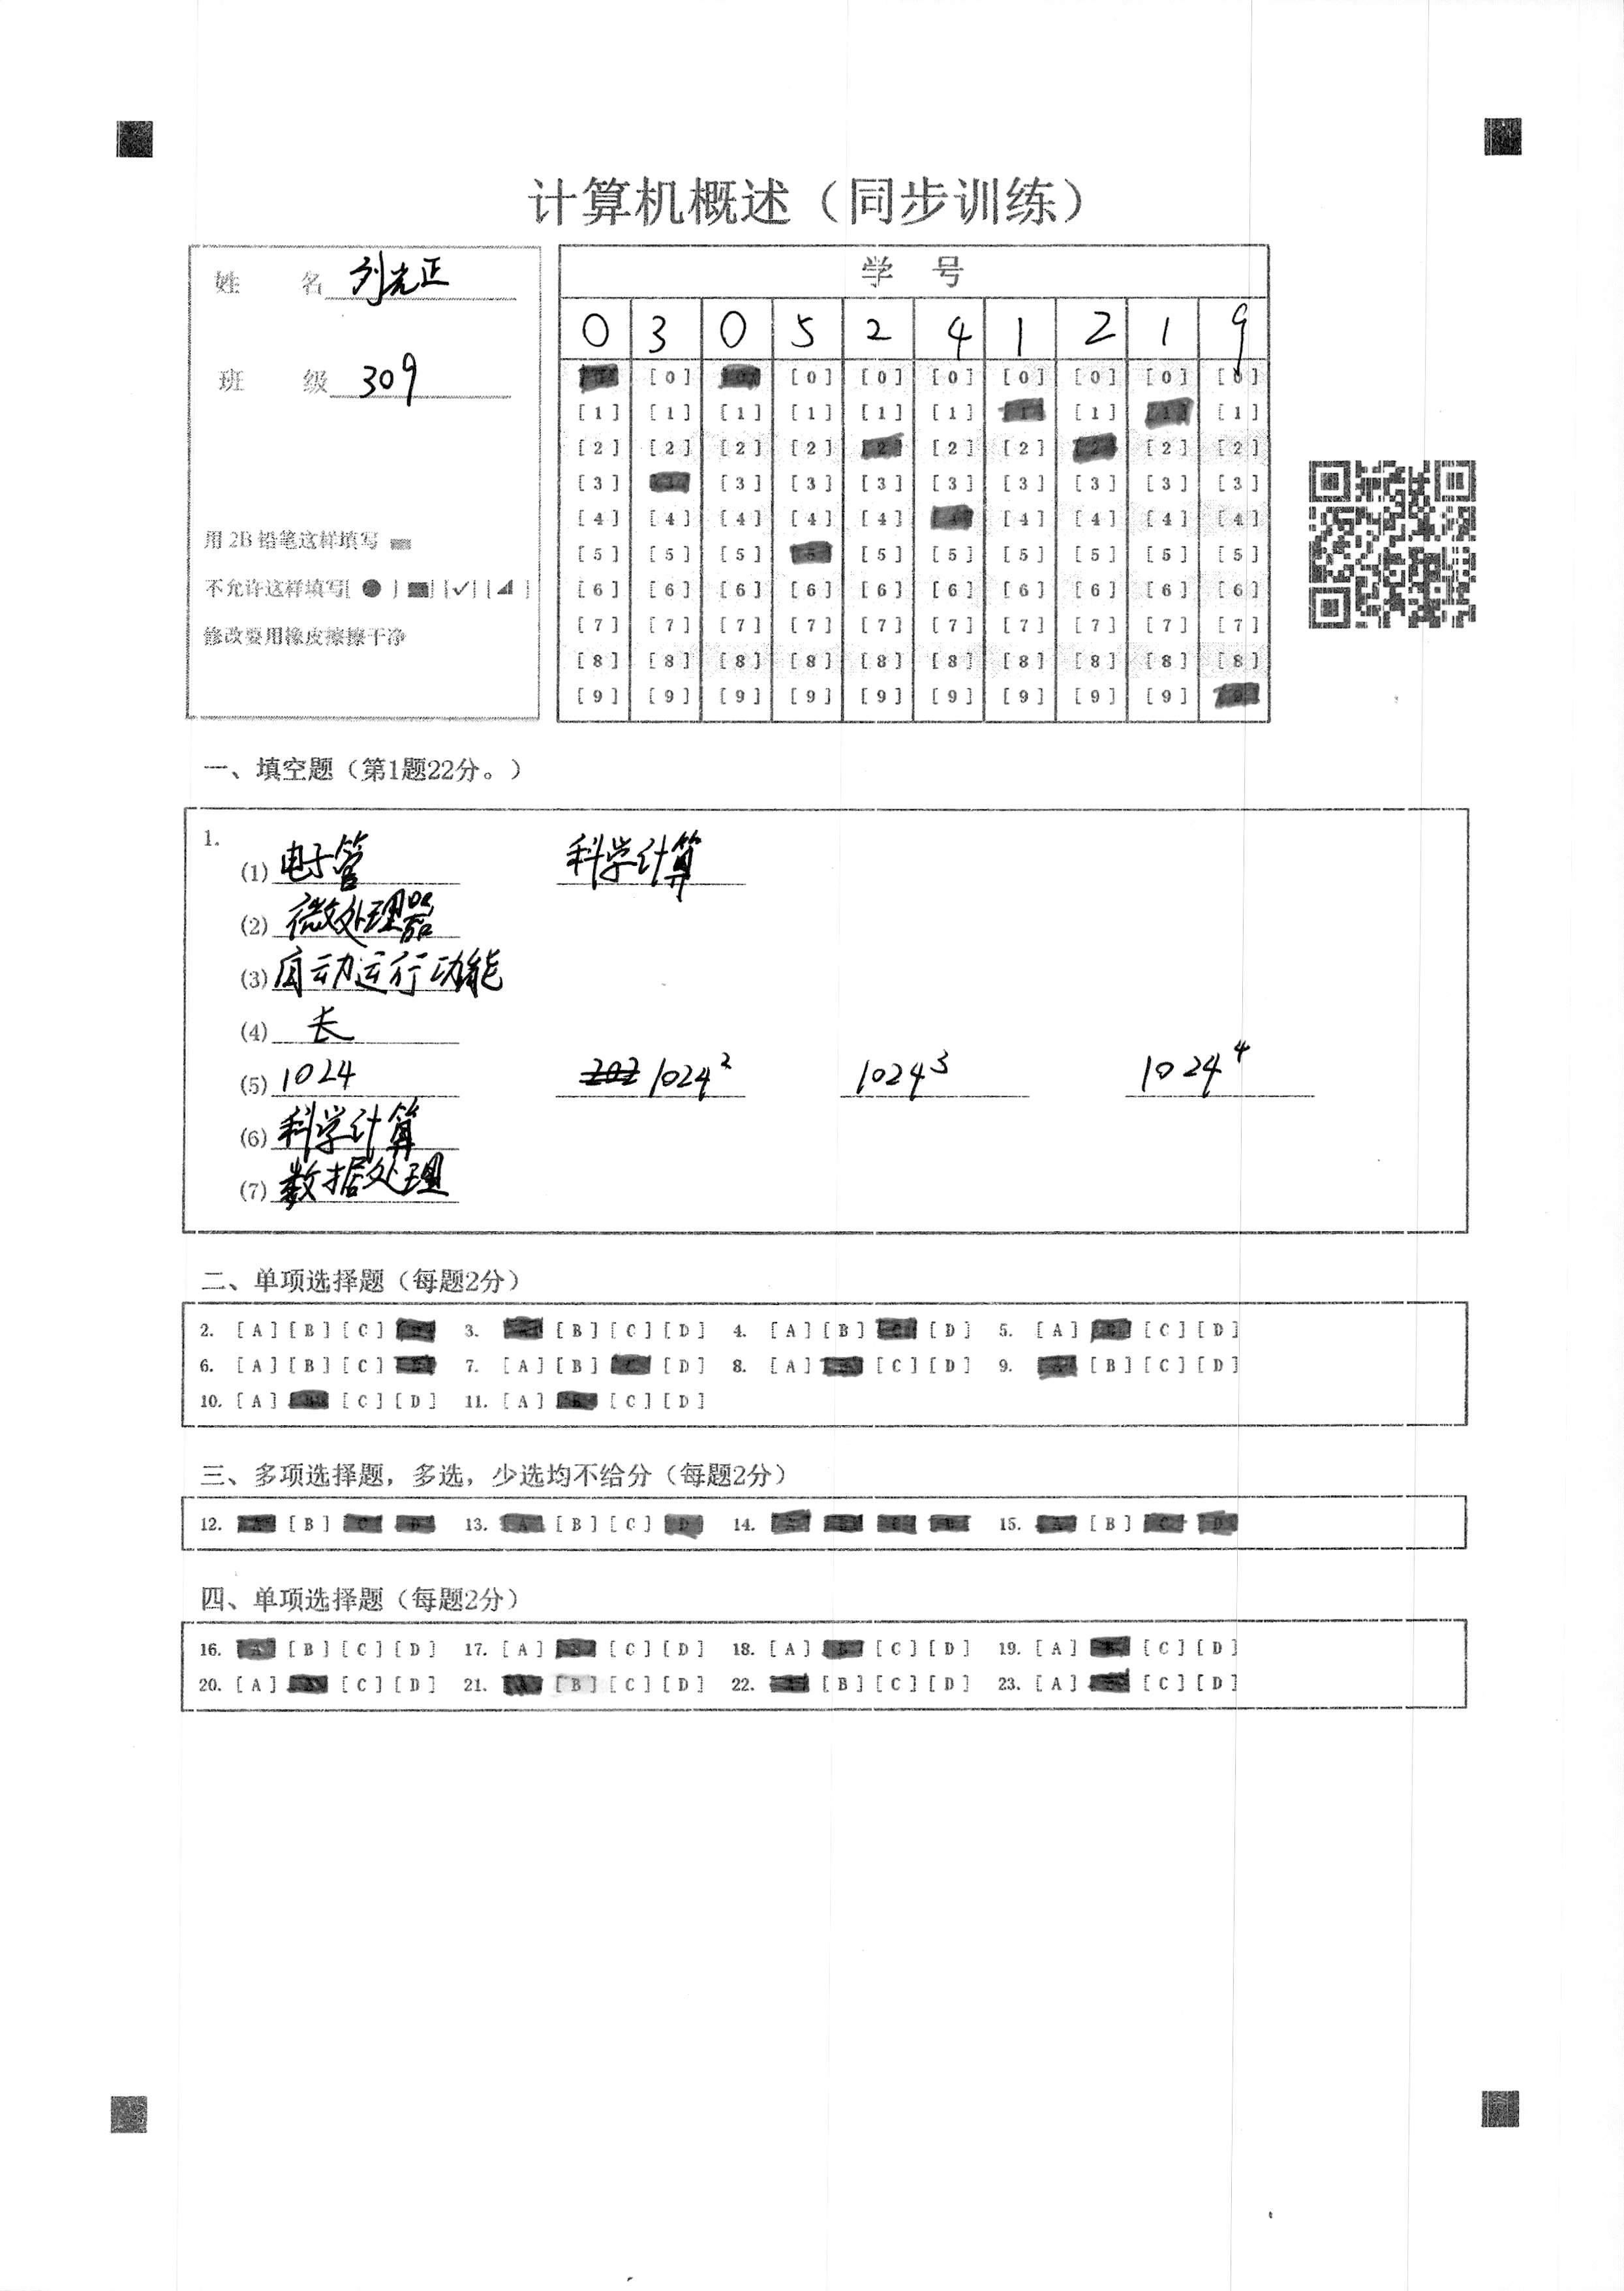 计算机概述（同步训练）
姓 名 刘光正
班 级 309
用 2B 铅笔这样填写
不允许这样填写[ ● ] [■] [✓] [◢ ]
修改要用橡皮擦擦干净
学 号
0 3 0 5 2 4 1 2 1 9
[0] [0] [0] [0] [0] [0] [0] [0]
[1] [1] [1] [1] [1] [1] [1] [1]
[2] [2] [2] [2] [2] [2] [2] [2] [2] [2]
[3] [3] [3] [3] [3] [3] [3] [3] [3]
[4] [4] [4] [4] [4] [4] [4] [4] [4]
[5] [5] [5] [5] [5] [5] [5] [5] [5]
[6] [6] [6] [6] [6] [6] [6] [6] [6] [6]
[7] [7] [7] [7] [7] [7] [7] [7] [7] [7]
[8] [8] [8] [8] [8] [8] [8] [8] [8] [8]
[9] [9] [9] [9] [9] [9] [9] [9] [9]
一、填空题（第1题22分。）
1.
(1) 电子管 科学计算
(2) 微处理器
(3) 自动运行功能
(4) 长
(5) 1024 1024² 1024³ 1024⁴
(6) 科学计算
(7) 数据处理
二、单项选择题（每题2分）
2. [A] [B] [C] 3. [B] [C] [D] 4. [A] [B] [D] 5. [A] [C] [D]
6. [A] [B] [C] 7. [A] [B] [D] 8. [A] [C] [D] 9. [B] [C] [D]
10. [A] [C] [D] 11. [A] [C] [D]
三、多项选择题，多选，少选均不给分（每题2分）
12. [B] 13. [B] [C] 14. 15. [B]
四、单项选择题（每题2分）
16. [B] [C] [D] 17. [A] [C] [D] 18. [A] [C] [D] 19. [A] [C] [D]
20. [A] [C] [D] 21. [B] [C] [D] 22. [B] [C] [D] 23. [A] [C] [D]